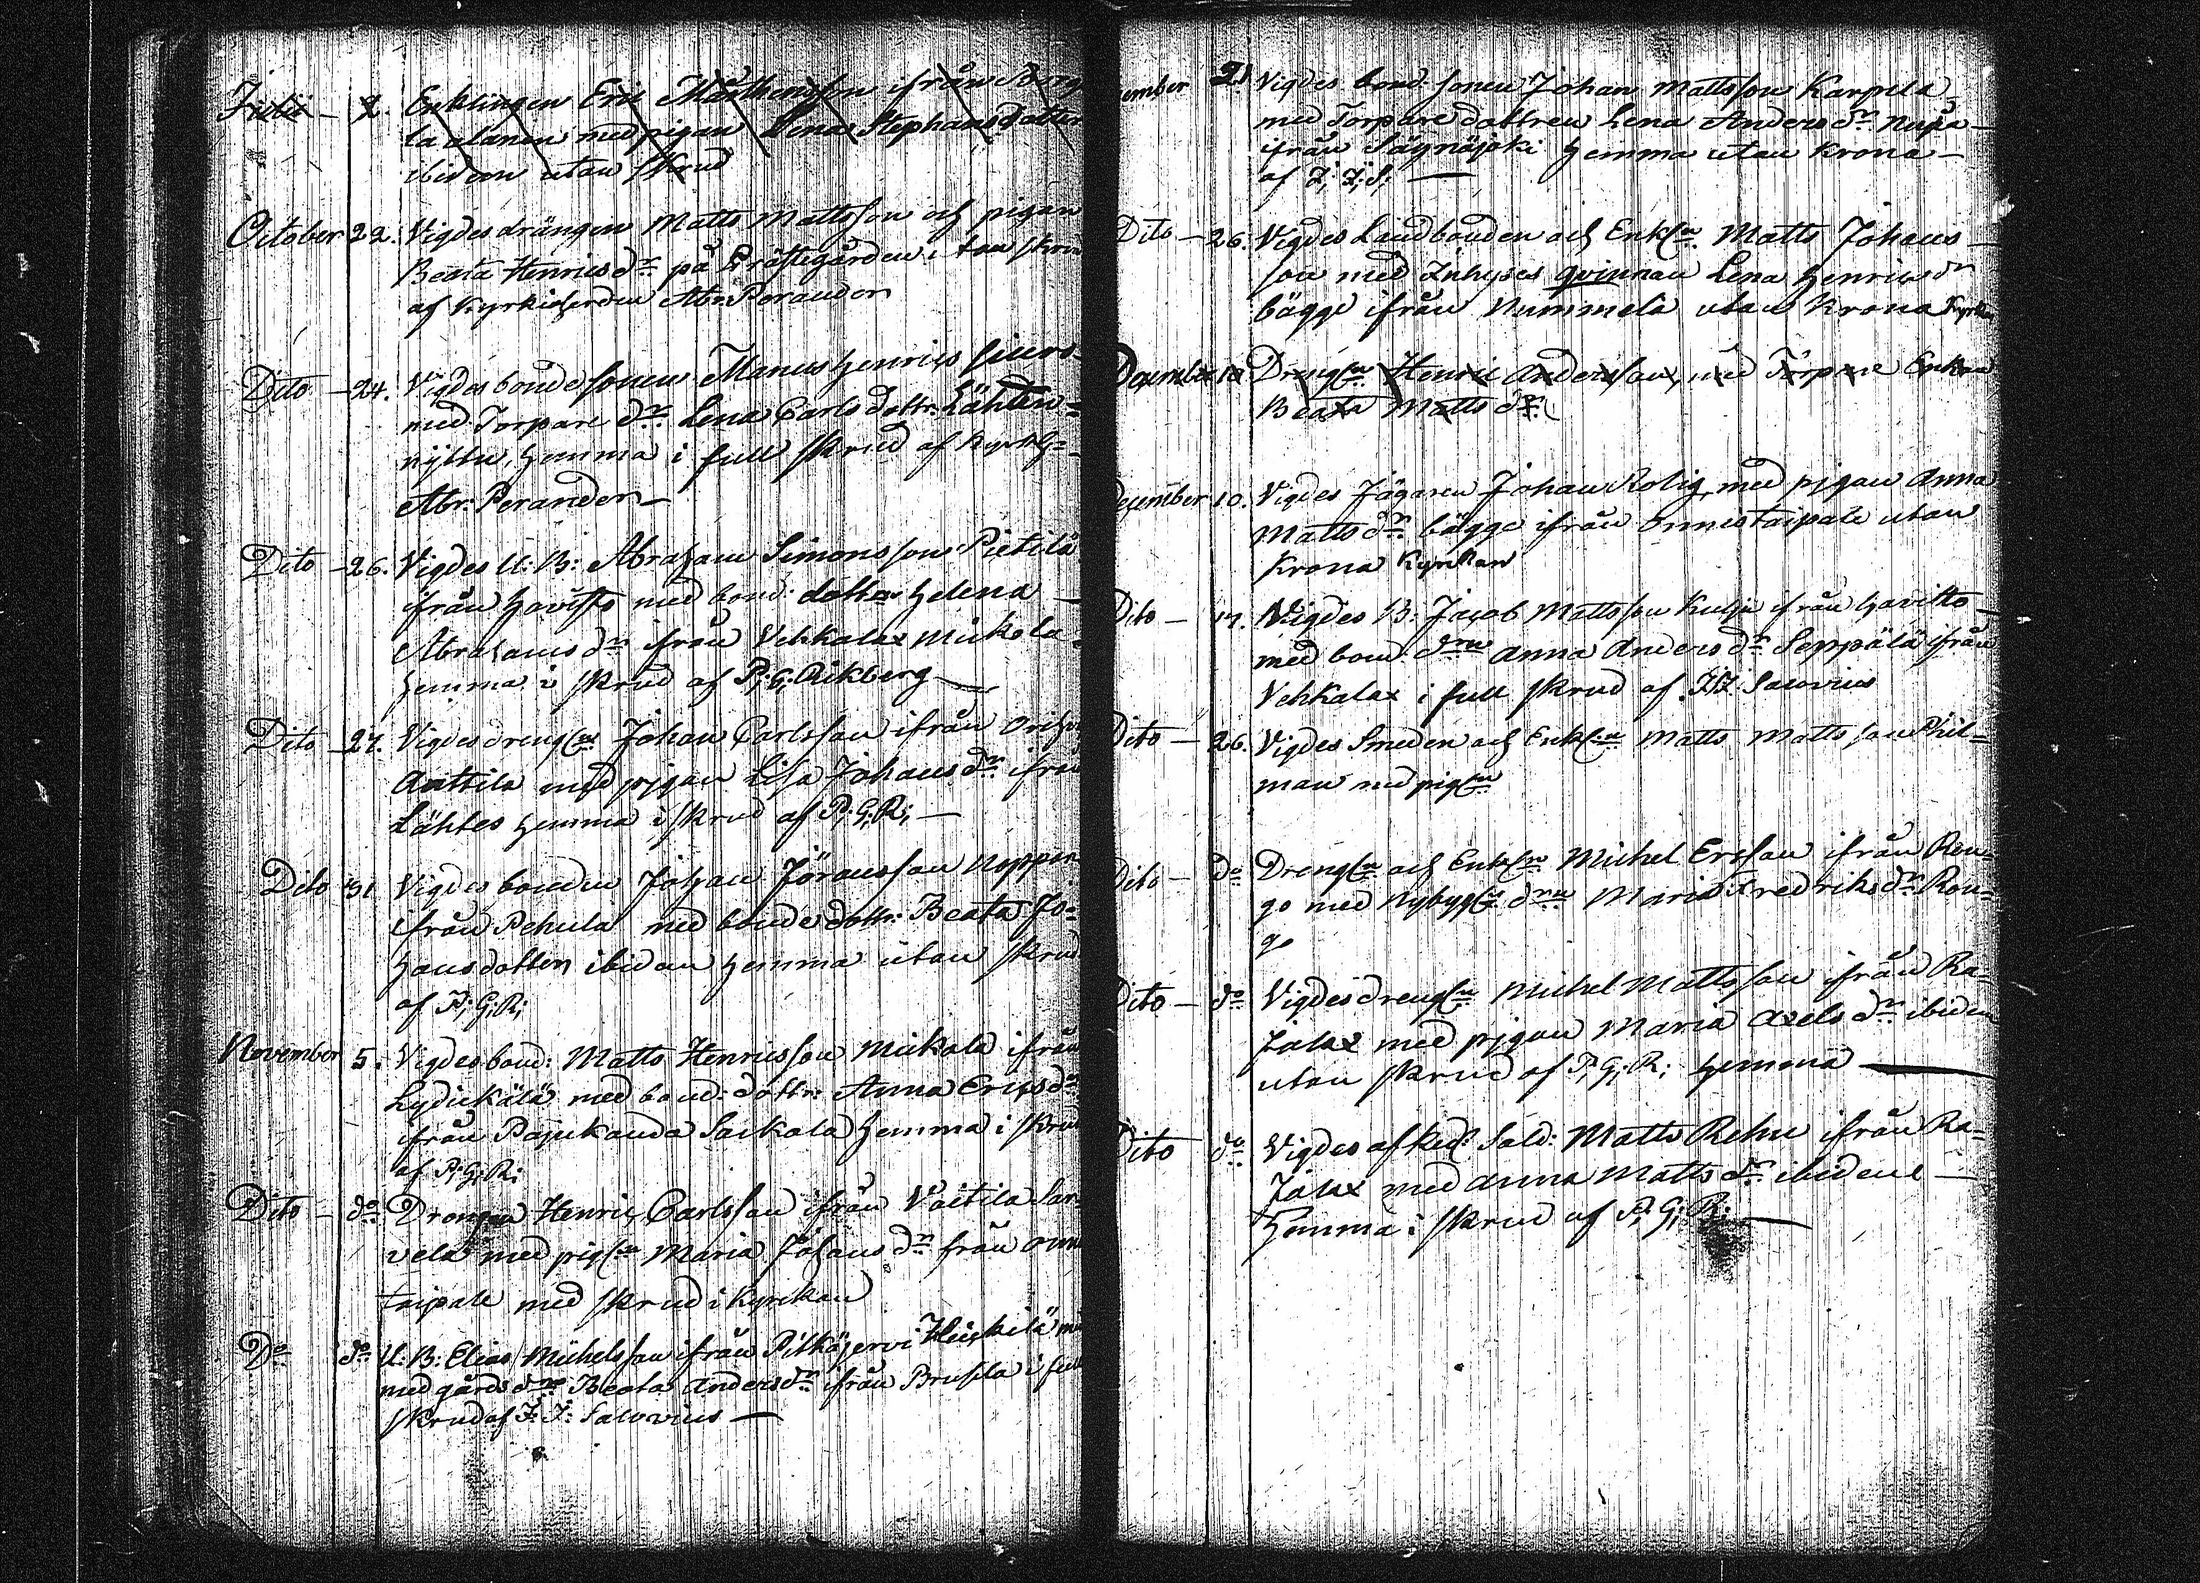 2. Enklingen Eric ifrån
med pigan Lena Stephansdotter
ibidem utan skrud
October 22. Vigdes drängen Matts Mattsson och pigan
Beata Henricsdr på Prästegården utan skrud
af Kyrkioherden Abr: Perander
Dito - 24. Vigdes bondesonen Henrics
med Torpare dr Lena Carls dottr: Lähten=
nyttu, hemma i full skrud af KyrkH=
Abr: Perander
Dito - 26. Vigdes U: B: Abraham Simonsson Pietilä
ifrån Havisto med bond: dottr Helena
Abrahams dr ifrån Vehkalax Mickola
hemma i skrud af P: G: Rikberg
Dito - 27. Vigdes drengen Johan Carlsson ifrån
Anttila med pigan Lisa Johans dr ifrån
Lähtes hemma i skrud af P: G: R:
Dito 31 Vigdes bonden Johan Göransson
ifrån Pehula med bonde dottr: Beata Jo=
hansdotter ibidem hemma utan skrud
af P: G: R:
November 5. Vigdes bond: Matts Henricsson Mickola ifrån
med bond: dottr: Anna Erics dr
ifrån Saikala hemma i skrud
af P: G: R:
Dito - do Drengen Henric Carlsson ifrån
vela med pigan Maria Johans dr från
taipale med skrud i Kyrckan
Do do U: B: Elias Michelsson ifrån Pitkäjervi Heickilä
med gårds drn Beata Anders dr ifrån i full
skrud af J: J: Salovius
21 Vigdes bond: sonen Johan Mattsson Karpela
med Torpare dottren Lena Anders dr
ifrån Säynäjoki hemma utan Krona
af J: J: S:
Dito - 26. Vigdes Landbonden och Enkln Matts Johans
son med Inhyses qvinnan Lena Henrics dr
bägge ifrån Nummela utan Krona
December 10 Drengen Henric Andersson, med Torpare Enkan
Beata Matts dr
December 10. Vigdes Jägaren Johan Rolig, med pigan Anna
Matts dr bägge ifrån Onnestaipale utan
Krona Kyrckan
Dito - 17. Vigdes B: Jacob Mattsson ifrån Havisto
med bond: drn Anna Anders dr Seppälä ifrån
Vehkalax i full skrud af J: J: Salovius
Dito - 26. Vigdes Smeden och Enkln Matts Mattsson Phil=
man med pigan
Dito - do Drengen och Enkln Michel Ersson ifrån Ren=
go med Nybygg drn Maria Fredriks dr Ren=
go
Dito - do Vigdes drengen Michel Mattsson ifrån Ra=
jalax med pigan Maria Axels dr ibidem
utan skrud af P: G: R: hemma
Dito do Vigdes afsked: Sold: Matts Rehn ifrån Ra=
jalax med Anna Matts dr ibidem
Hemma i skrud af P: G: R: